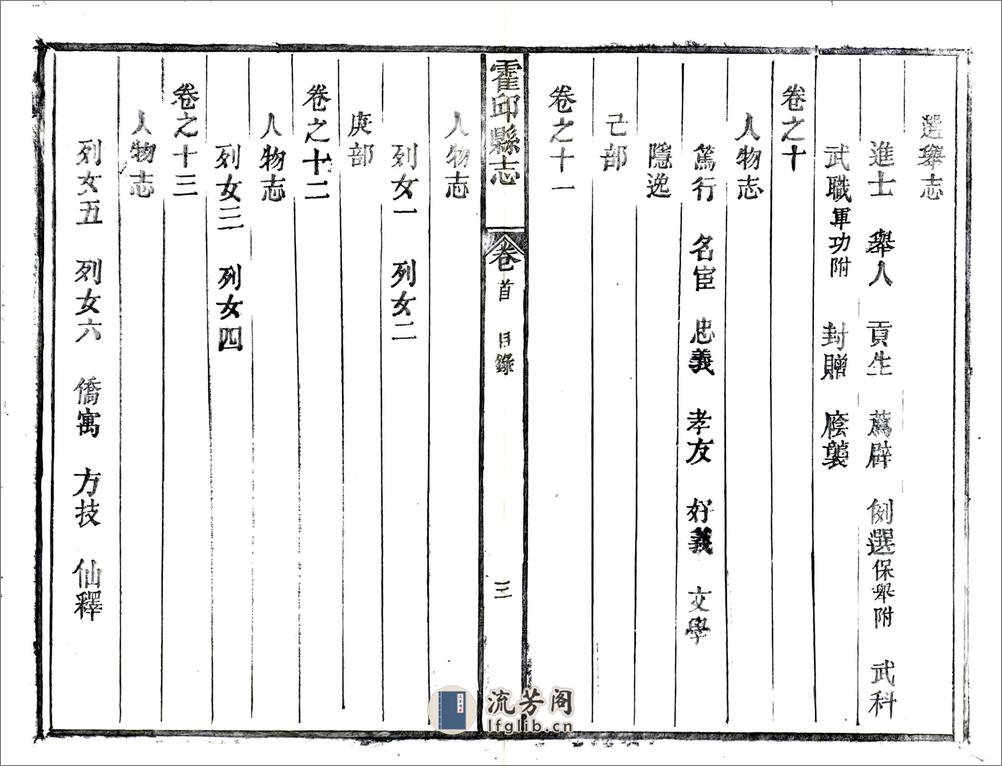 選舉志
進士 舉人 貢生 薦辟 例選保舉附 武科
武職軍功附 封贈 廕襲
卷之十
人物志
篤行 名宦 忠義 孝友 好義 文學
隱逸
己部
卷之十一
霍邱縣志 卷首 目錄 三
人物志
列女一 列女二
庚部
卷之十二
人物志
列女三 列女四
卷之十三
人物志
列女五 列女六 僑寓 方技 仙釋
流芳阁
lfglib.cn